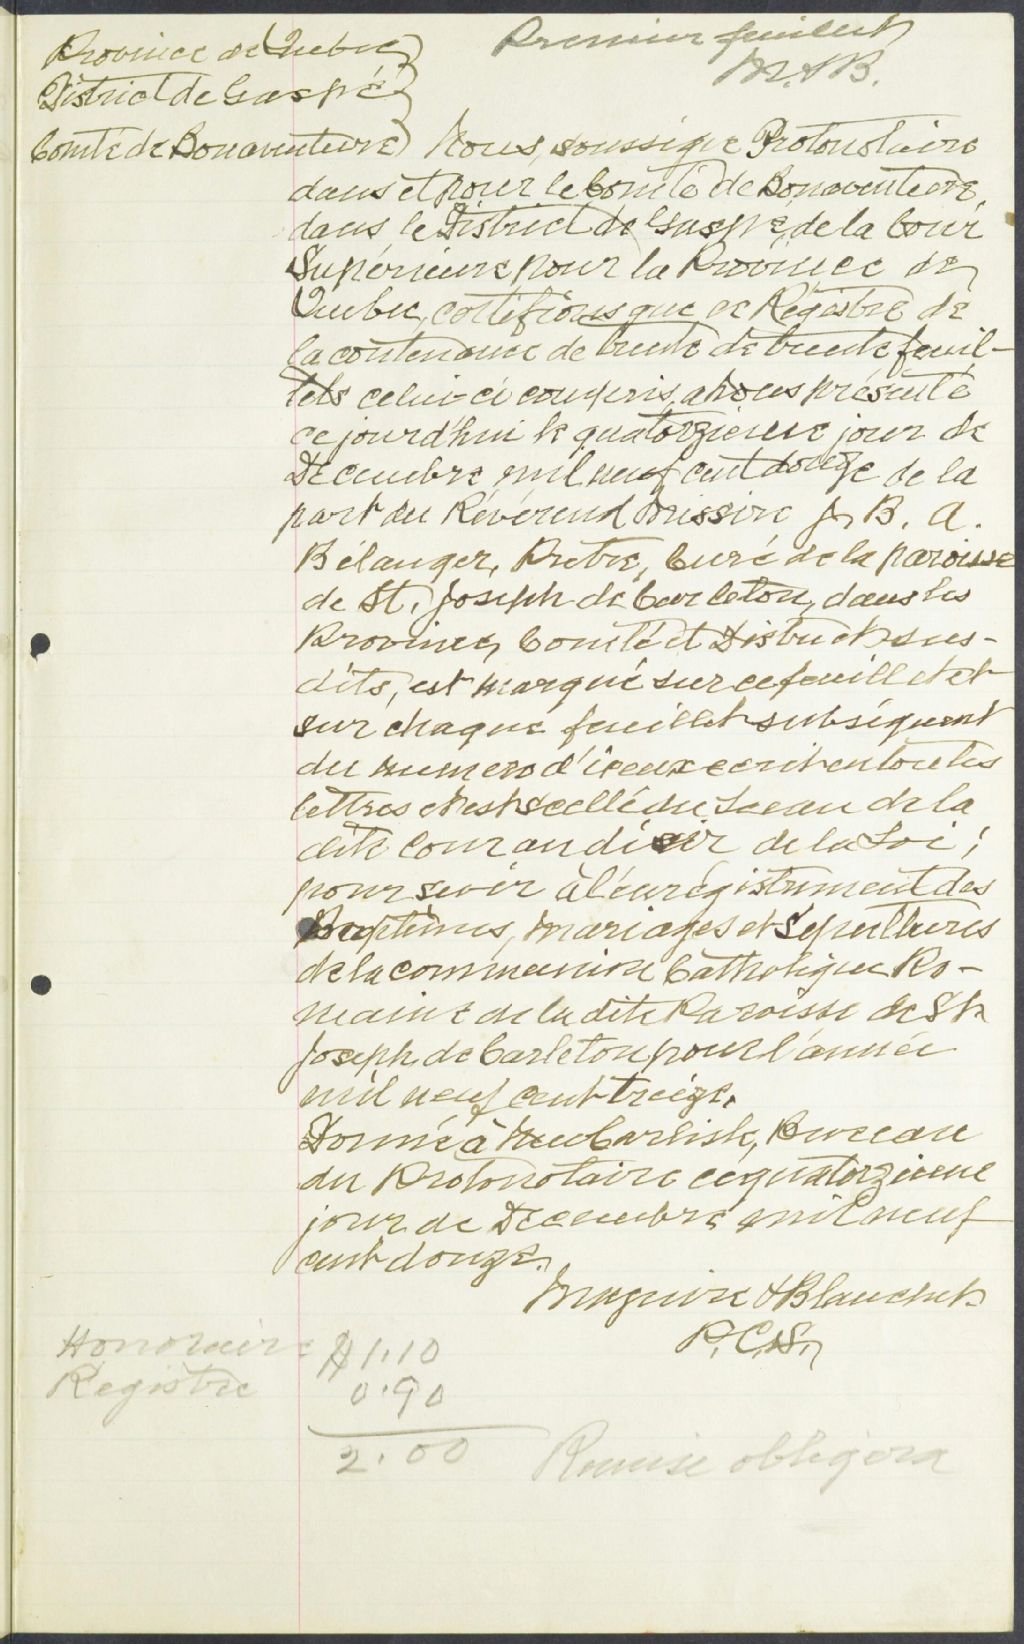 Province de Quebec)
District de Gaspé)
Comté de Bonaventure)
Premier feuillet
M. & B.
Nous, soussigne Protonotaire
dans et pour le Comté de Bonaventure,
dans le District de Gaspé, de la Cour
Supérieure pour la Province de
Quebec, certifions que ce Régistre de
la contenance de trente de trente feuil-
lets celui-ci compris, a nous présenté
ce jourd'hui le quatorzieme jour de
Decembre mil neuf cent douze de la
part du Révérend Messire J. B. A.
Bélanger, Pretre, Curé de la paroisse
de St. Joseph de Carleton, dans les
Province, Comté et District sus-
dits, est marqué sur ce feuillet et
sur chaque feuillet subséquent
du numero d'iceux ecrit en toutes
lettres et est scellé du Sceau de la
dite Cour au désir de la Loi;
pour sevir à l'enrégistrement des
Baptêmes, Mariages et Sépultures
de la communion Catholique Ro-
maine de la dite Paroisse de St.
Joseph de Carleton pour l'année
mil neuf cent treize.
Donné à New Carlisle, Bureau
du Protonotaire ce quatorzieme
jour de Decembre mil neuf
cent douze.
Maguire & Blanchet
P.C.S.
Honoraire $1.10
Registre 0.90
2.00
Remise obligera